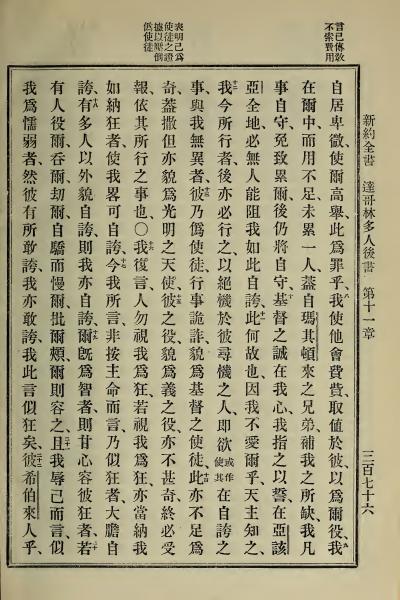 新約全書 達哥林多人後書 第十一章 三百七十六
言己傳敎
不索費用
表明己爲
使徒之證
據以壓倒
僞使徒
自居卑微、使爾高舉、此爲罪乎、我使他會費貲、取値於彼、以爲爾役、我
在爾中而用不足、未累一人、蓋自瑪其頓來之兄弟、補我之所缺、我凡
事自守、免致累爾、後仍將自守、基督之誠在我心、我指之以誓、在亞該
亞全地、必無人能阻我如此自誇、此何故也、因我不愛爾乎、天主知之、
我今所行者、後亦必行之、以絕機於彼尋機之人、卽欲或作使其在自誇之
事、與我無異者、彼乃僞使徒、行事詭詐、貌爲基督之使徒、此亦不足爲
奇、蓋撒但亦貌爲光明之天使、彼之役、貌爲義之役、亦不甚奇、終必受
報、依其所行之事也、〇我復言、人勿視我爲狂、若視我爲狂、亦當納我
如納狂者、使我畧可自誇、今我所言、非按主命而言、乃似狂者、大膽自
誇、有多人以外貌自誇、則我亦自誇、爾旣爲智者、則甘心容彼狂者、若
有人役爾、吞爾、刼爾、自驕而慢爾、批爾頰、爾則容之、且我辱己而言、似
我爲懦弱者、然彼有所敢誇、我亦敢誇、我此言似狂矣、彼希伯來人乎、